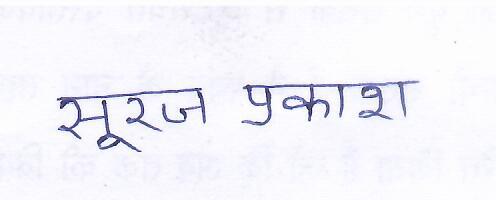 सूरज प्रकाश